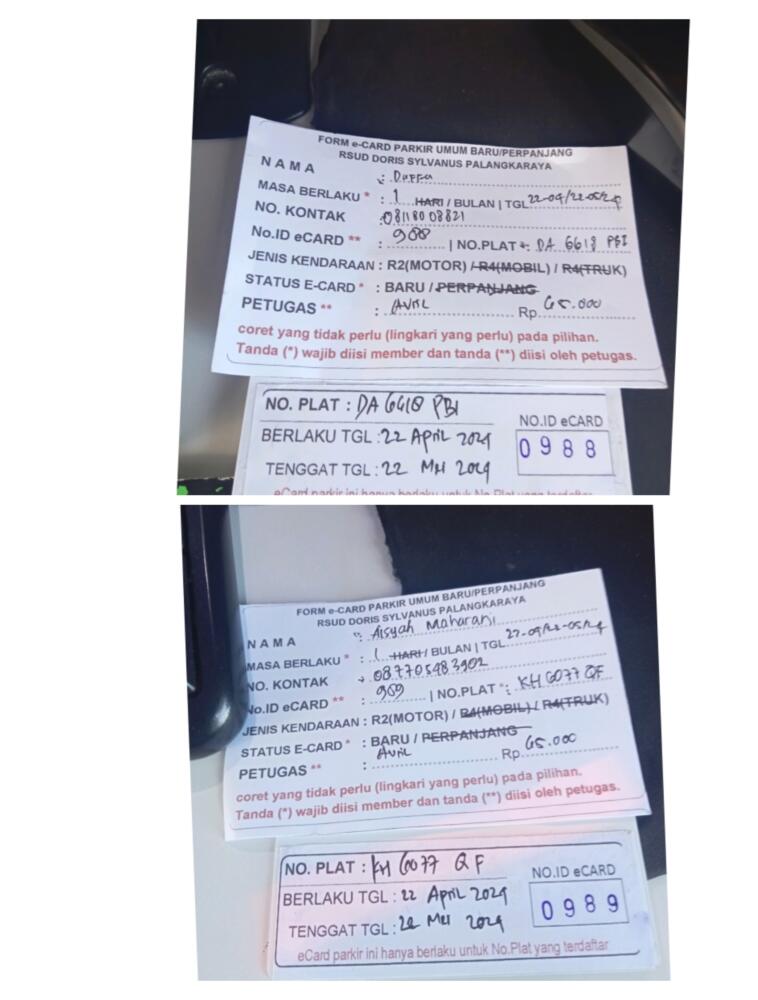 FORM e-CARD PARKIR UMUM BARU/PERPANJANG
RSUD DORIS SYLVANUS PALANGKARAYA
NAMA :
MASA BERLAKU * : 1 HARI / BULAN | TGL 22-04/22-05/24
NO. KONTAK : 08118008821
No.ID eCARD ** : 988 | NO.PLAT *: DA 6618 PBI
JENIS KENDARAAN : R2(MOTOR) / R4(MOBIL) / R4(TRUK)
STATUS E-CARD * : BARU / PERPANJANG
PETUGAS ** : AVRIL Rp. 65.000
coret yang tidak perlu (lingkari yang perlu) pada pilihan.
Tanda (*) wajib diisi member dan tanda (**) diisi oleh petugas.
NO. PLAT : DA 6618 PBI
BERLAKU TGL : 22 APRIL 2024
TENGGAT TGL : 22 MEI 2024
NO.ID eCARD
0988
eCard parkir ini hanya berlaku untuk No.Plat yang terdaftar
FORM e-CARD PARKIR UMUM BARU/PERPANJANG
RSUD DORIS SYLVANUS PALANGKARAYA
NAMA : Aisyah Maharani
MASA BERLAKU * : 1 HARI / BULAN | TGL
NO. KONTAK : 087705483902
No.ID eCARD ** : 989 | NO.PLAT *: KH 6077 QF
JENIS KENDARAAN : R2(MOTOR) / R4(MOBIL) / R4(TRUK)
STATUS E-CARD * : BARU / PERPANJANG
PETUGAS ** : AVRIL Rp. 65.000
coret yang tidak perlu (lingkari yang perlu) pada pilihan.
Tanda (*) wajib diisi member dan tanda (**) diisi oleh petugas.
NO. PLAT : KH 6077 QF
BERLAKU TGL : 22 APRIL 2024
TENGGAT TGL : 22 MEI 2024
NO.ID eCARD
0989
eCard parkir ini hanya berlaku untuk No.Plat yang terdaftar